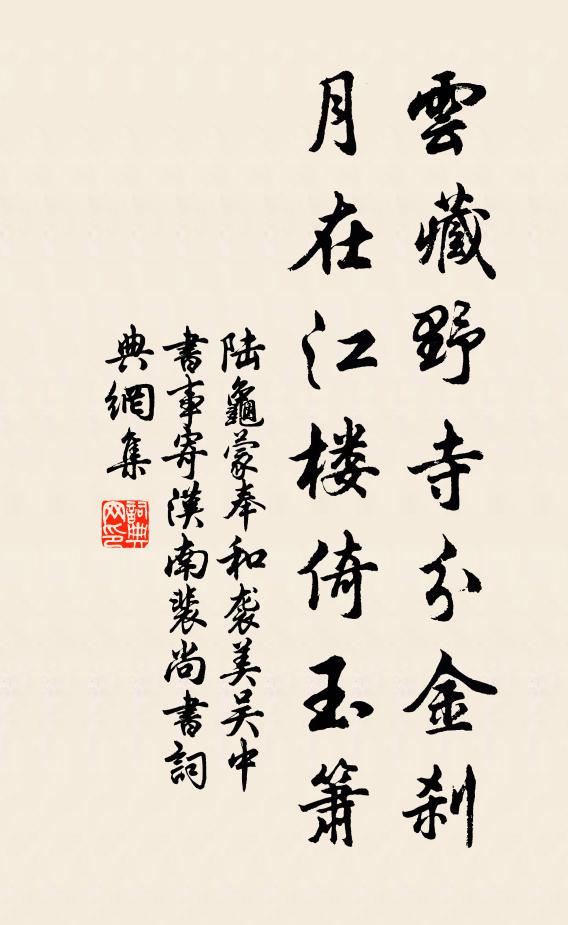 雲藏野寺分金刹
月在江楼倚玉簫
陆龜蒙奉和袭美吴中
書事寄漢南裴尚書詞
典網集
詞典
网印